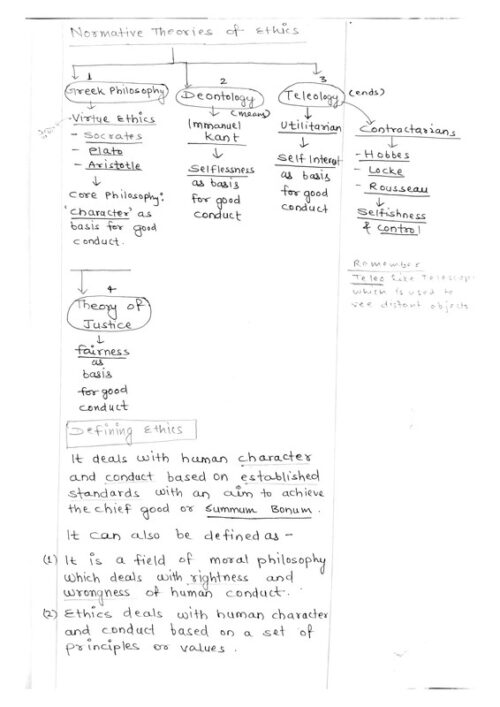 Normative Theories of Ethics
1
Greek Philosophy
Virtue Ethics
- Socrates
- Plato
- Aristotle
Core Philosophy:
'character' as
basis for good
conduct.
2
Deontology
(means)
Immanuel
Kant
Selflessness
as basis
for good
conduct
3
Teleology (ends)
Utilitarian
Self Interest
as basis
for good
conduct
Contractarians
- Hobbes
- Locke
- Rousseau
Selfishness
& control
Remember
Teleo like Telescope
which is used to
see distant objects
4
Theory of
Justice
fairness
as
basis
for good
conduct
Defining Ethics
It deals with human character
and conduct based on established
standards with an aim to achieve
the chief good or Summum Bonum.
It can also be defined as -
(1) It is a field of moral philosophy
which deals with rightness and
wrongness of human conduct.
(2) Ethics deals with human character
and conduct based on a set of
principles or values.